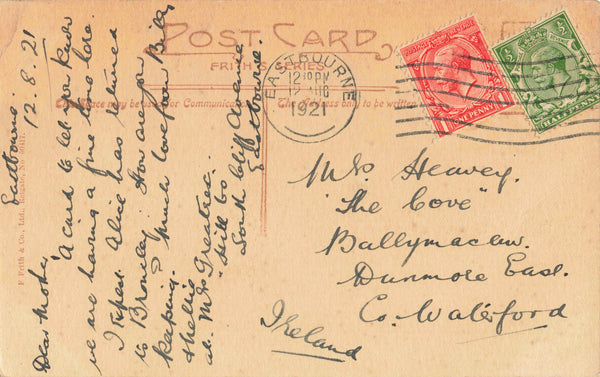 POST CARD
FRITH'S SERIES
The Space may be used for Communication.
The Address only to be written
F. Frith & Co., Ltd., Reigate, No.
EASTBOURNE
12 AUG
1921
HALFPENNY
Eastbourne
12.8.21
Dear
A card to let you know
we are having a fine time here
I expect Alice has returned
to Bromley. How are you
keeping. Much love from Billy
& Nellie
at. Mrs Greatrex.
"Hill
South Cliff Avenue
Eastbourne.
Mrs Heavey.
"The Cove"
Ballymaclaw.
Dunmore East.
Co. Waterford
Ireland